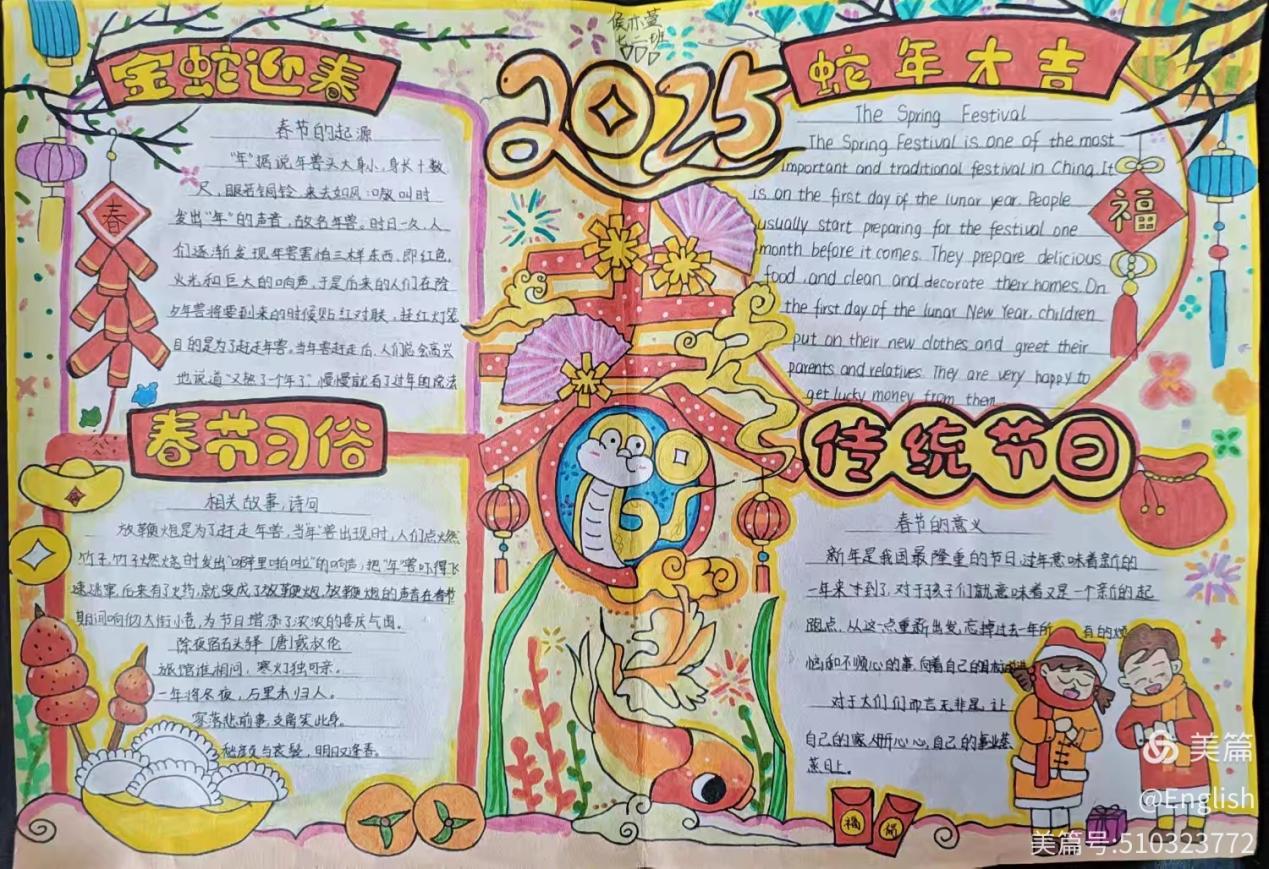 金蛇迎春
春节的起源
"年"据说年兽头大身小、身长十数
尺,眼若铜铃,来去如风,嗷叫时
发出"年"的声音,故名年兽。时日一久,人
们逐渐发现年兽害怕三木样东西,即红色,
火光和巨大的响声,于是后来的人们在除
夕年兽将要到来的时候贴红对联,挂红灯笼
目的是为了赶走年兽。当年兽赶走后,人们总会高兴
也说道"又熬了一个年了",慢慢就有了过年的说法
春
春节习俗
相关故事,诗句
放鞭炮是为了赶走年兽,当年兽出现时,人们点燃
竹子,竹子燃烧时发出"噼里啪啦"的响声,把"年"兽吓得飞
速逃窜,后来有了火药,就变成了放鞭炮,放鞭炮的声音在春节
期间响彻大街小巷,为节日增添了浓浓的喜庆气围。
除夜宿石头驿 [唐]戴叔伦
旅馆谁相问,寒灯独可亲。
一年将尽夜,万里未归人。
寥落悲前事,支离笑此身。
愁颜与衰鬓,明日又逢春。
侯木萱
七二班
2025
蛇年大吉
The Spring Festival
The Spring Festival is one of the most
important and traditional festival in China. It
is on the first day of the lunar year. People
usually start preparing for the festival one
month before it comes. They prepare delicious
food, and clean and decorate their homes. On
the first day of the lunar New Year, children
put on their new clothes and greet their
parents and relatives. They are very happy to
get lucky money from them
福
传统节日
春节的意义
新年是我国最隆重的节日,过年意味着新的
一年来到了,对于孩子们就意味着又是一个新的起
跑点,从这一点重新出发,忘掉过去一年所有的烦
恼和不顺心的事,向着自己的目标
对于大们们而言无非是,让
自己的家人开心心,自己的事业蒸
蒸日上。
福
福
美篇
@English
美篇号:510323772